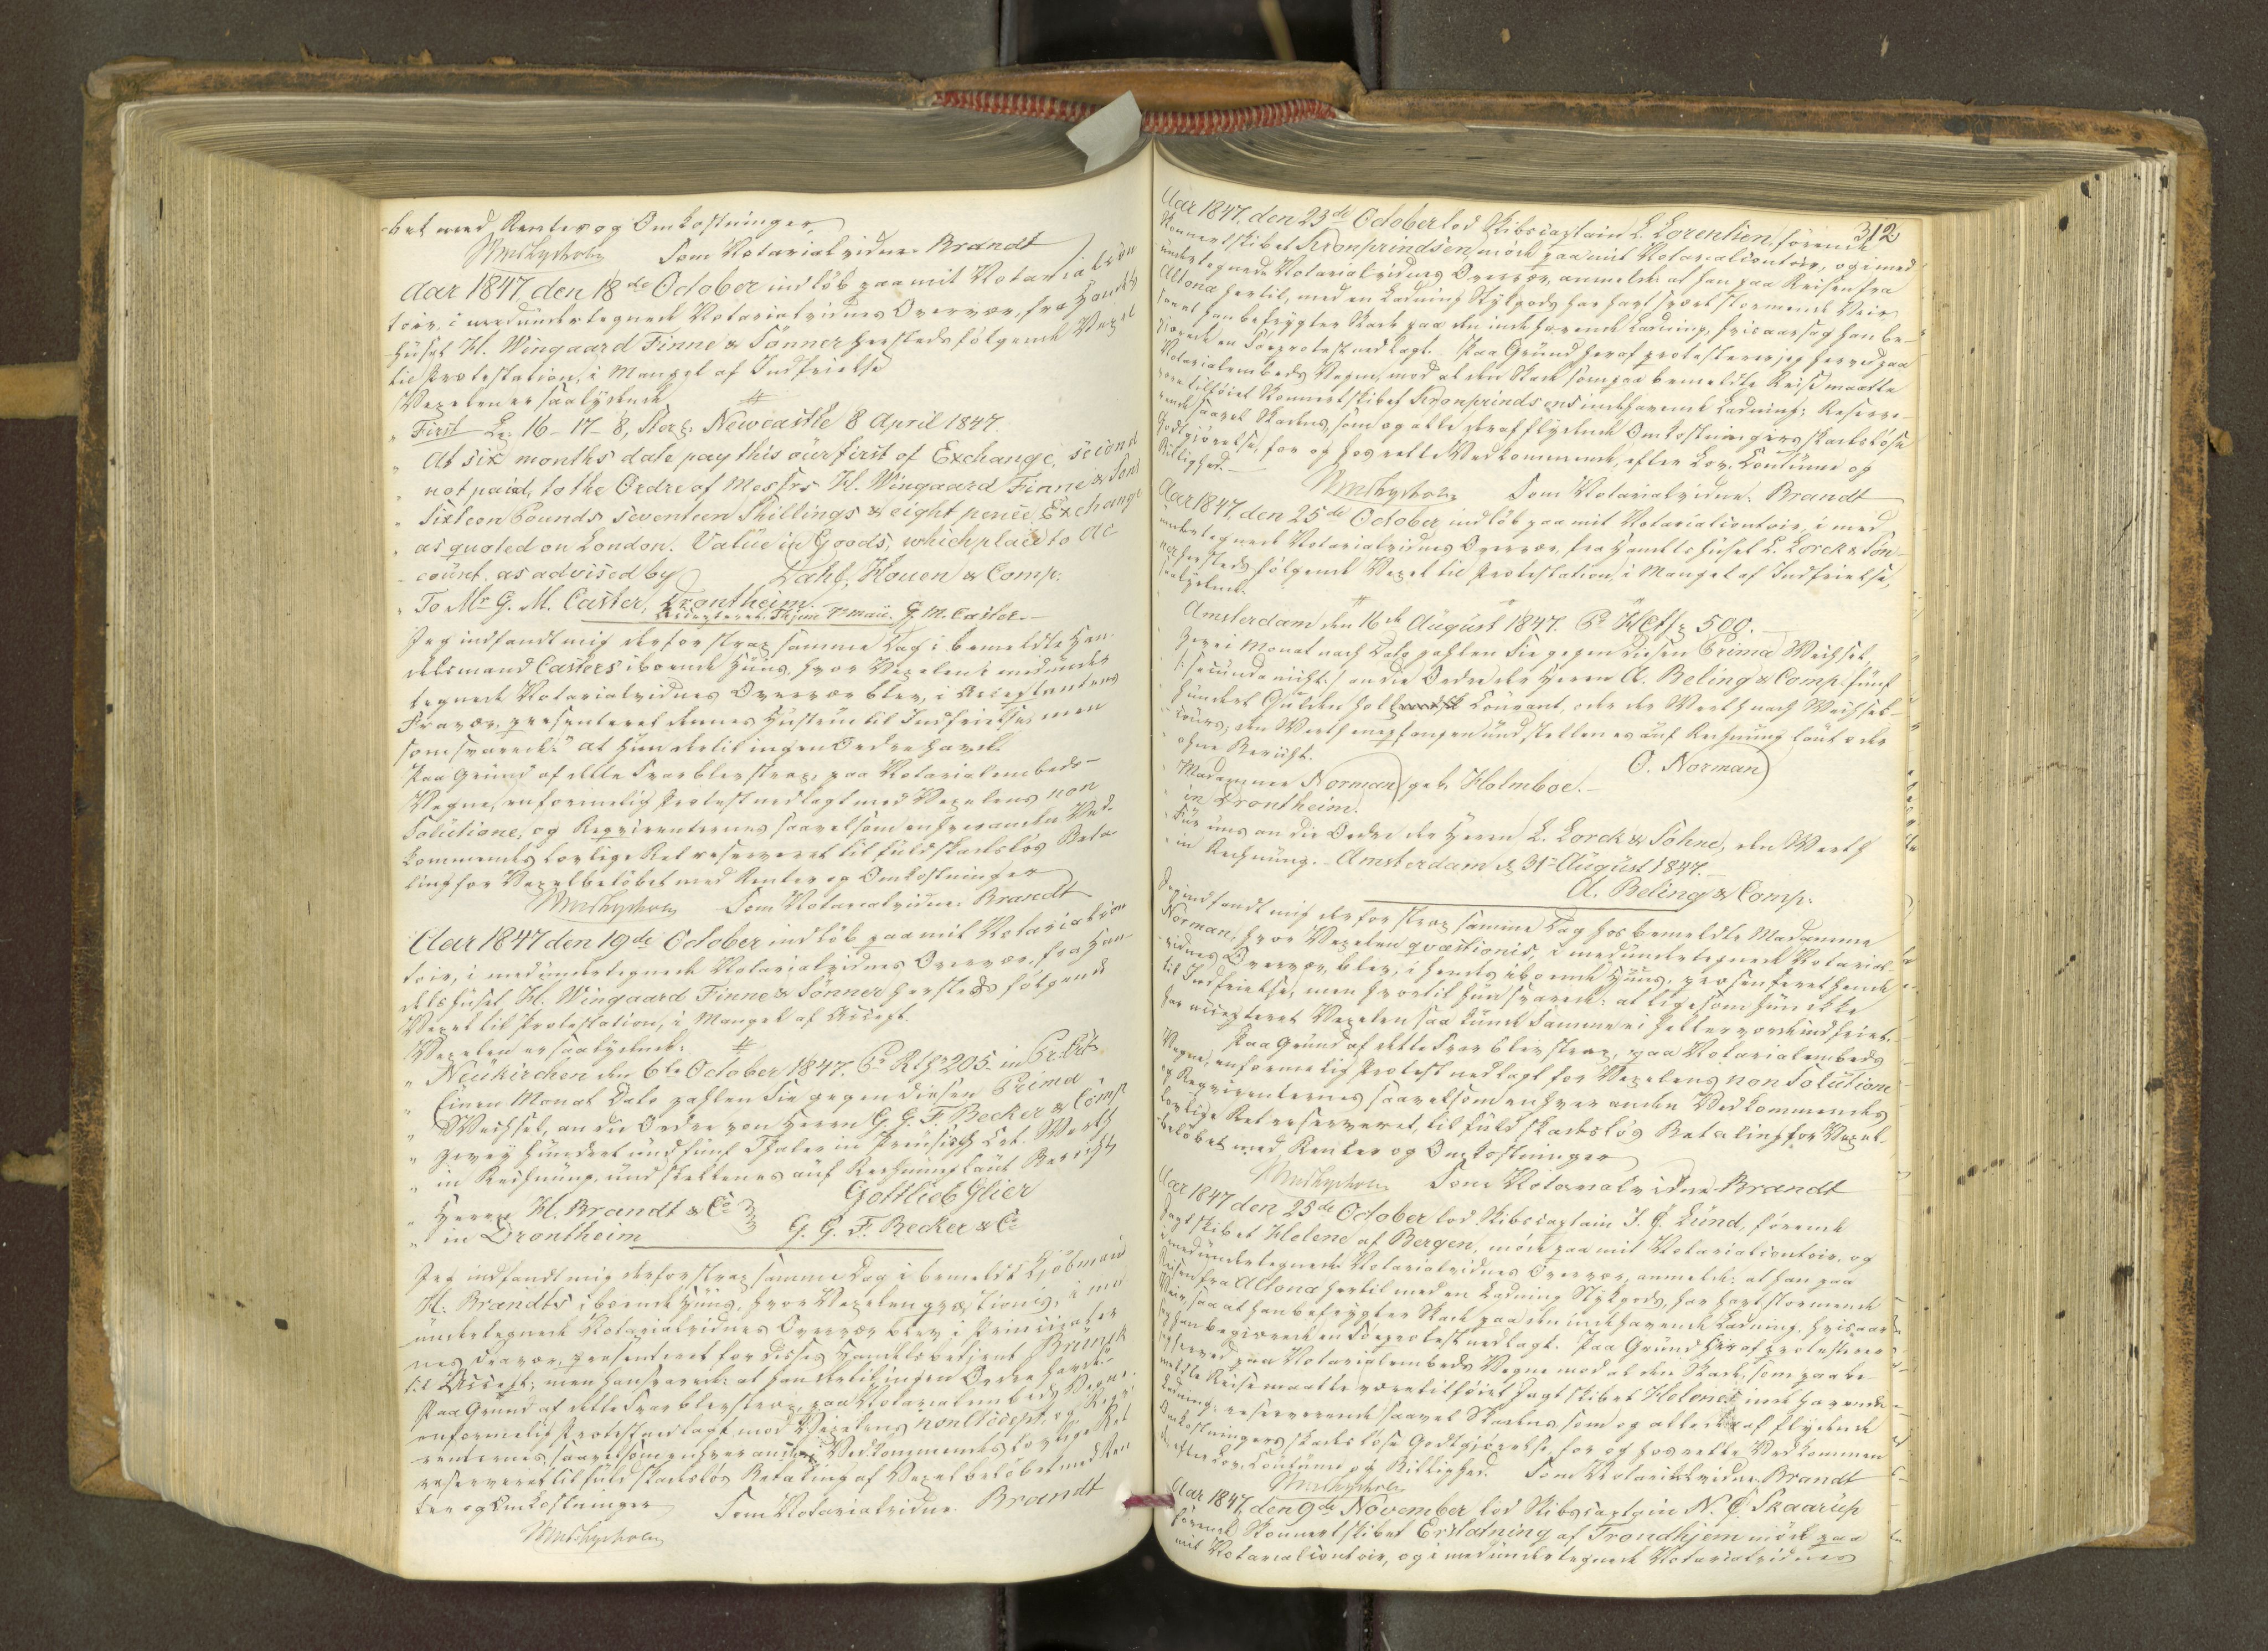 bet med Renter og Omkostninger
Som Notarialvidne Brandt
Aar 1847 den 18de October indløb paa mit Notarialcon
toir, i medundertegnede Notarialvidnes Overvær, fra Handels
huset H. Wingaard Finne & Sönner hersteds følgende Vexel
til Protestation, i Mangel af Indfrielse
Vexelen er saalydende
" First £ 16-17-8, Sterg: Newcastle 8 April 1847.
" At six months date pay this our first of Exchange, second
" not paid, to the Ordre of Messrs H. Wingaard Finne & Sons
" Sixteen Pounds seventeen Shillings & eight pence Exchange
" as quoted on London. Value in Goods, which place to Ac
- count. as advised by Dahl, Houen & Comp:
" To Mr G. M. Caster, Drontheim.
Accepteret. Thjem 7de Maii. G. M. Caster.
Jeg indfandt mig derfor strax samme Dag i bemeldte Han
delsmand Casters iboende Huus, hvor Vexelen i medunder
tegnede Notarialvidnes Overvær blev, i Acceptantens
Fravær, presenteret dennes Hustrue til Indfrielse, men
som svarede: at hun dertil ingen Ordre havde.
Paa Grund af dette Svar blev strax, paa Notarialembeds
Vegne, en formelig Protest nedlagt mod Vexelens non
Solutione, og Reqvirenternes saavelsom enhver anden Ved-
kommendes lovlige Ret reserveret til fuld skadesløs Beta
ling for Vexelbeløbet med Renter og Omkostninger
Som Notarialvidne: Brandt
Aar 1847 den 19de October indløb paa mit Notarialcon
toir, i medundertegnede Notarialvidnes Overvær, fra Han-
delshuset H. Wingaard Finne & Sönner hersteds følgende
Vexel til Protestation, i Mangel af Accept.
Vexelen er saalydende:
" Neukirchen den 6te October 1847. Pr Rth 205. in Pr: Crt
" Einen Monat Dato zahlen Sie gegen diesen Prima
" Wechsel, an die Ordre von Herrn G. G. F. Becker & Comp
" zwey hundert und fünf Thaler in Preusisch Crt. Werth
" in Rechnung, und stellen es auf Rechnung laut Bericht
" Herren H. Brandt & Co Gottlieb Glier
" in Drontheim G. G. F. Becker & Co
Jeg indfandt mig derfor strax samme Dag i bemeldte Kjöbmand
H. Brandts iboende Huus, hvor Vexelen qvæstionis, i med
undertegnede Notarialvidnes Overvær blev i Principaler
nes Fravær, presenteret for disses Handelsbetjent
til Accept; men han svarede: at han dertil ingen Ordre havde
Paa Grund af dette Svar blev strax, paa Notarialembeds Vegne
en formelig Protest nedlagt mod Vexelens non Accept, og Reqvi
renternes, saavelsom enhver anden Vedkommendes lovlige Ret
reserveret til fuld skadesløs Betaling af Vexelbeløbet med Ren
ter og Omkostninger Som Notarialvidne Brandt
312
Aar 1847, den 23de October lod Skibscaptain L. Lorentzen, förende
Skonnertskibet Kronprindsen, möde paa mit Notarialcontoir, og i med
undertegnede Notarialvidnes Overvær, anmelde: at han paa Reisen fra
Altona hertil, med en Ladning Stykgods har havt svært stormende Veir
saa at han befrygter Skade paa den indehavende Ladning, hvis aarsag han be-
gjærede en Søeprotest nedlagt. Paa Grund heraf protesterer jeg herved paa
Notarialembeds Vegne, mod al den Skade som paa bemeldte Reise maatte
være tilføiet Skonnertskibet Kronprindsens indehavende Ladning; Reserve-
rende saavel Skadens, som og alle deraf flydende Omkostningers skadesløse
Godtgjørelse, for og hos rette Vedkommende, efter Lov, Coutume og
Billighed.
Som Notarialvidne: Brandt
Aar 1847, den 25de October indløb paa mit Notarialcontoir, i med
undertegnede Notarialvidnes Overvær, fra Handelshuset L. Lorck & Søn-
ner hersteds følgende Vexel til Protestation, i Mangel af Indfrielse,
saalydende.
Amsterdam den 16de August 1847. Pr 500.
Zwei Monat nach Dato zahlen Sie gegen diesen Prima Wechsel
(: secunda nicht :) an die Ordre der Herren A. Beling & Comp: fünf
hundert Gulden Couvant, oder der Werth nach Wechsel-
cours, den Werth empfangen und stellen es auf Rechnung laut oder
ohne Bericht.
O. Norman
Madamme Norman geb. Holmboe.
in Drontheim.
Für uns an die Ordre der Herren L. Lorck & Söhne, den Werth
in Rechnung. Amsterdam d 31te August 1847.
A. Beling & Comp:
Jeg indfandt mig derfor strax samme Dag hos bemeldte Madamme
Norman, hvor Vexelen qvæstionis, i medundertegnede Notarial-
vidnes Overvær, blev, i hendes iboende Huus, presenteret hende
til Indfrielse, men hvortil hun svarede: at ligesom hun ikke
har accepteret Vexelen saa kunde samme ei heller vorde indfriet.
Paa Grund af dette Svar blev strax, paa Notarialembeds
Vegne, en formelig Protest nedlagt for Vexelens non Solutione
og Reqvirenternes saavelsom enhver anden Vedkommendes
lovlige Ret reserveret, til fuld skadesløs Betaling for Vexel-
beløbet med Renter og Omkostninger
Som Notarialvidne Brandt
Aar 1847 den 25de October lod Skibscaptain J. C. Lund, förende
Jagtskibet Helene af Bergen, möde paa mit Notarialcontoir, og
i medundertegnede Notarialvidnes Overvær, anmelde: at han paa
Reisen fra Altona hertil med en Ladning Stykgods, har havt stormende
Veir, saa at han befrygter Skade paa den indehavende Ladning, hvis aar
sag han begjærede en Søeprotest nedlagt. Paa Grund heraf protesterer
jeg herved paa Notarialembeds Vegne mod al den Skade, som paa be-
meldte Reise maatte være tilføiet Jagtskibet Helenes indehavende
Ladning; reserverende saavel Skadens som og alle deraf flydende
Omkostningers skadesløse Godtgjørelse, for og hos rette Vedkommen
de, efter Lov, Coutume og Billighed. Som Notarialvidne Brandt
Aar 1847, den 9de November lod Skibscaptain N. C. Skaarup
förende Skonnertskibet Erstatning af Trondhjem möde paa
mit Notarialcontoir, og i medundertegnede Notarialvidnes